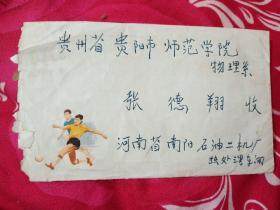 贵州省贵阳市师范学院
物理系
张德翔收
河南省南阳石油二机厂
热处理车间